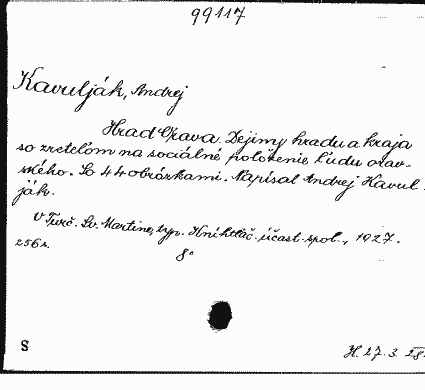 99117
Kavulják, Andrej
Hrad Orava. Dejiny hradu a kraja
so zreteľom na sociálné položenie ľudu orav-
ského. So 44 obrázkami. Napísal Andrej Kavul-
ják.
V Turč. Sv. Martine, typ. Kníhtlač. účast. spol., 1927.
256 s.
8°
S
H. 27. 3. 28.